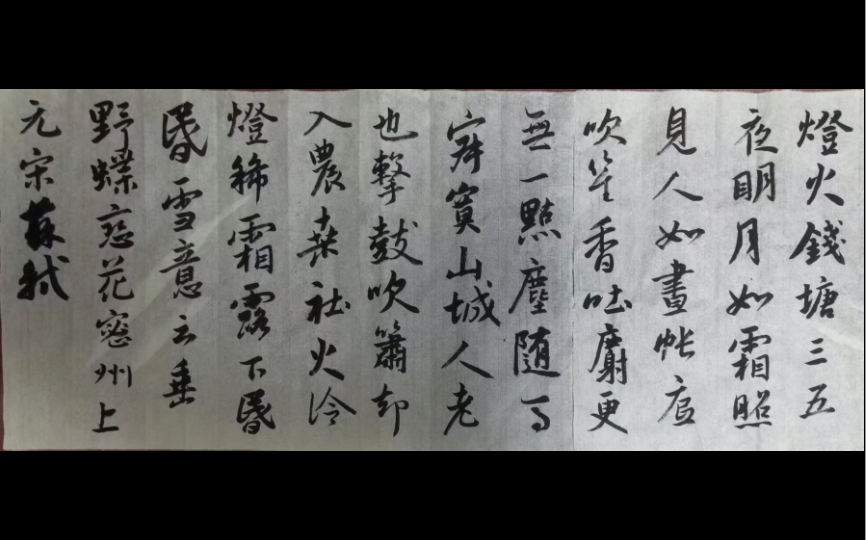 燈火錢塘三五
夜明月如霜照
見人如畫帳底
吹笙香吐麝更
無一點塵隨馬
寂寞山城人老
也擊鼓吹簫却
入農桑社火冷
燈稀霜露下昏
昏雪意云垂
野蝶戀花密州上
元宋蘇軾